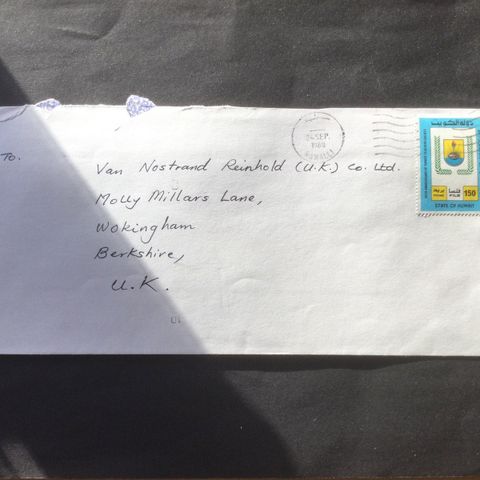 To.
Van Nostrand Reinhold (U.K.) Co. Ltd.
Molly Millars Lane,
Wokingham
Berkshire,
U.K.
SEP.
دولة الكويت
150
STATE OF KUWAIT